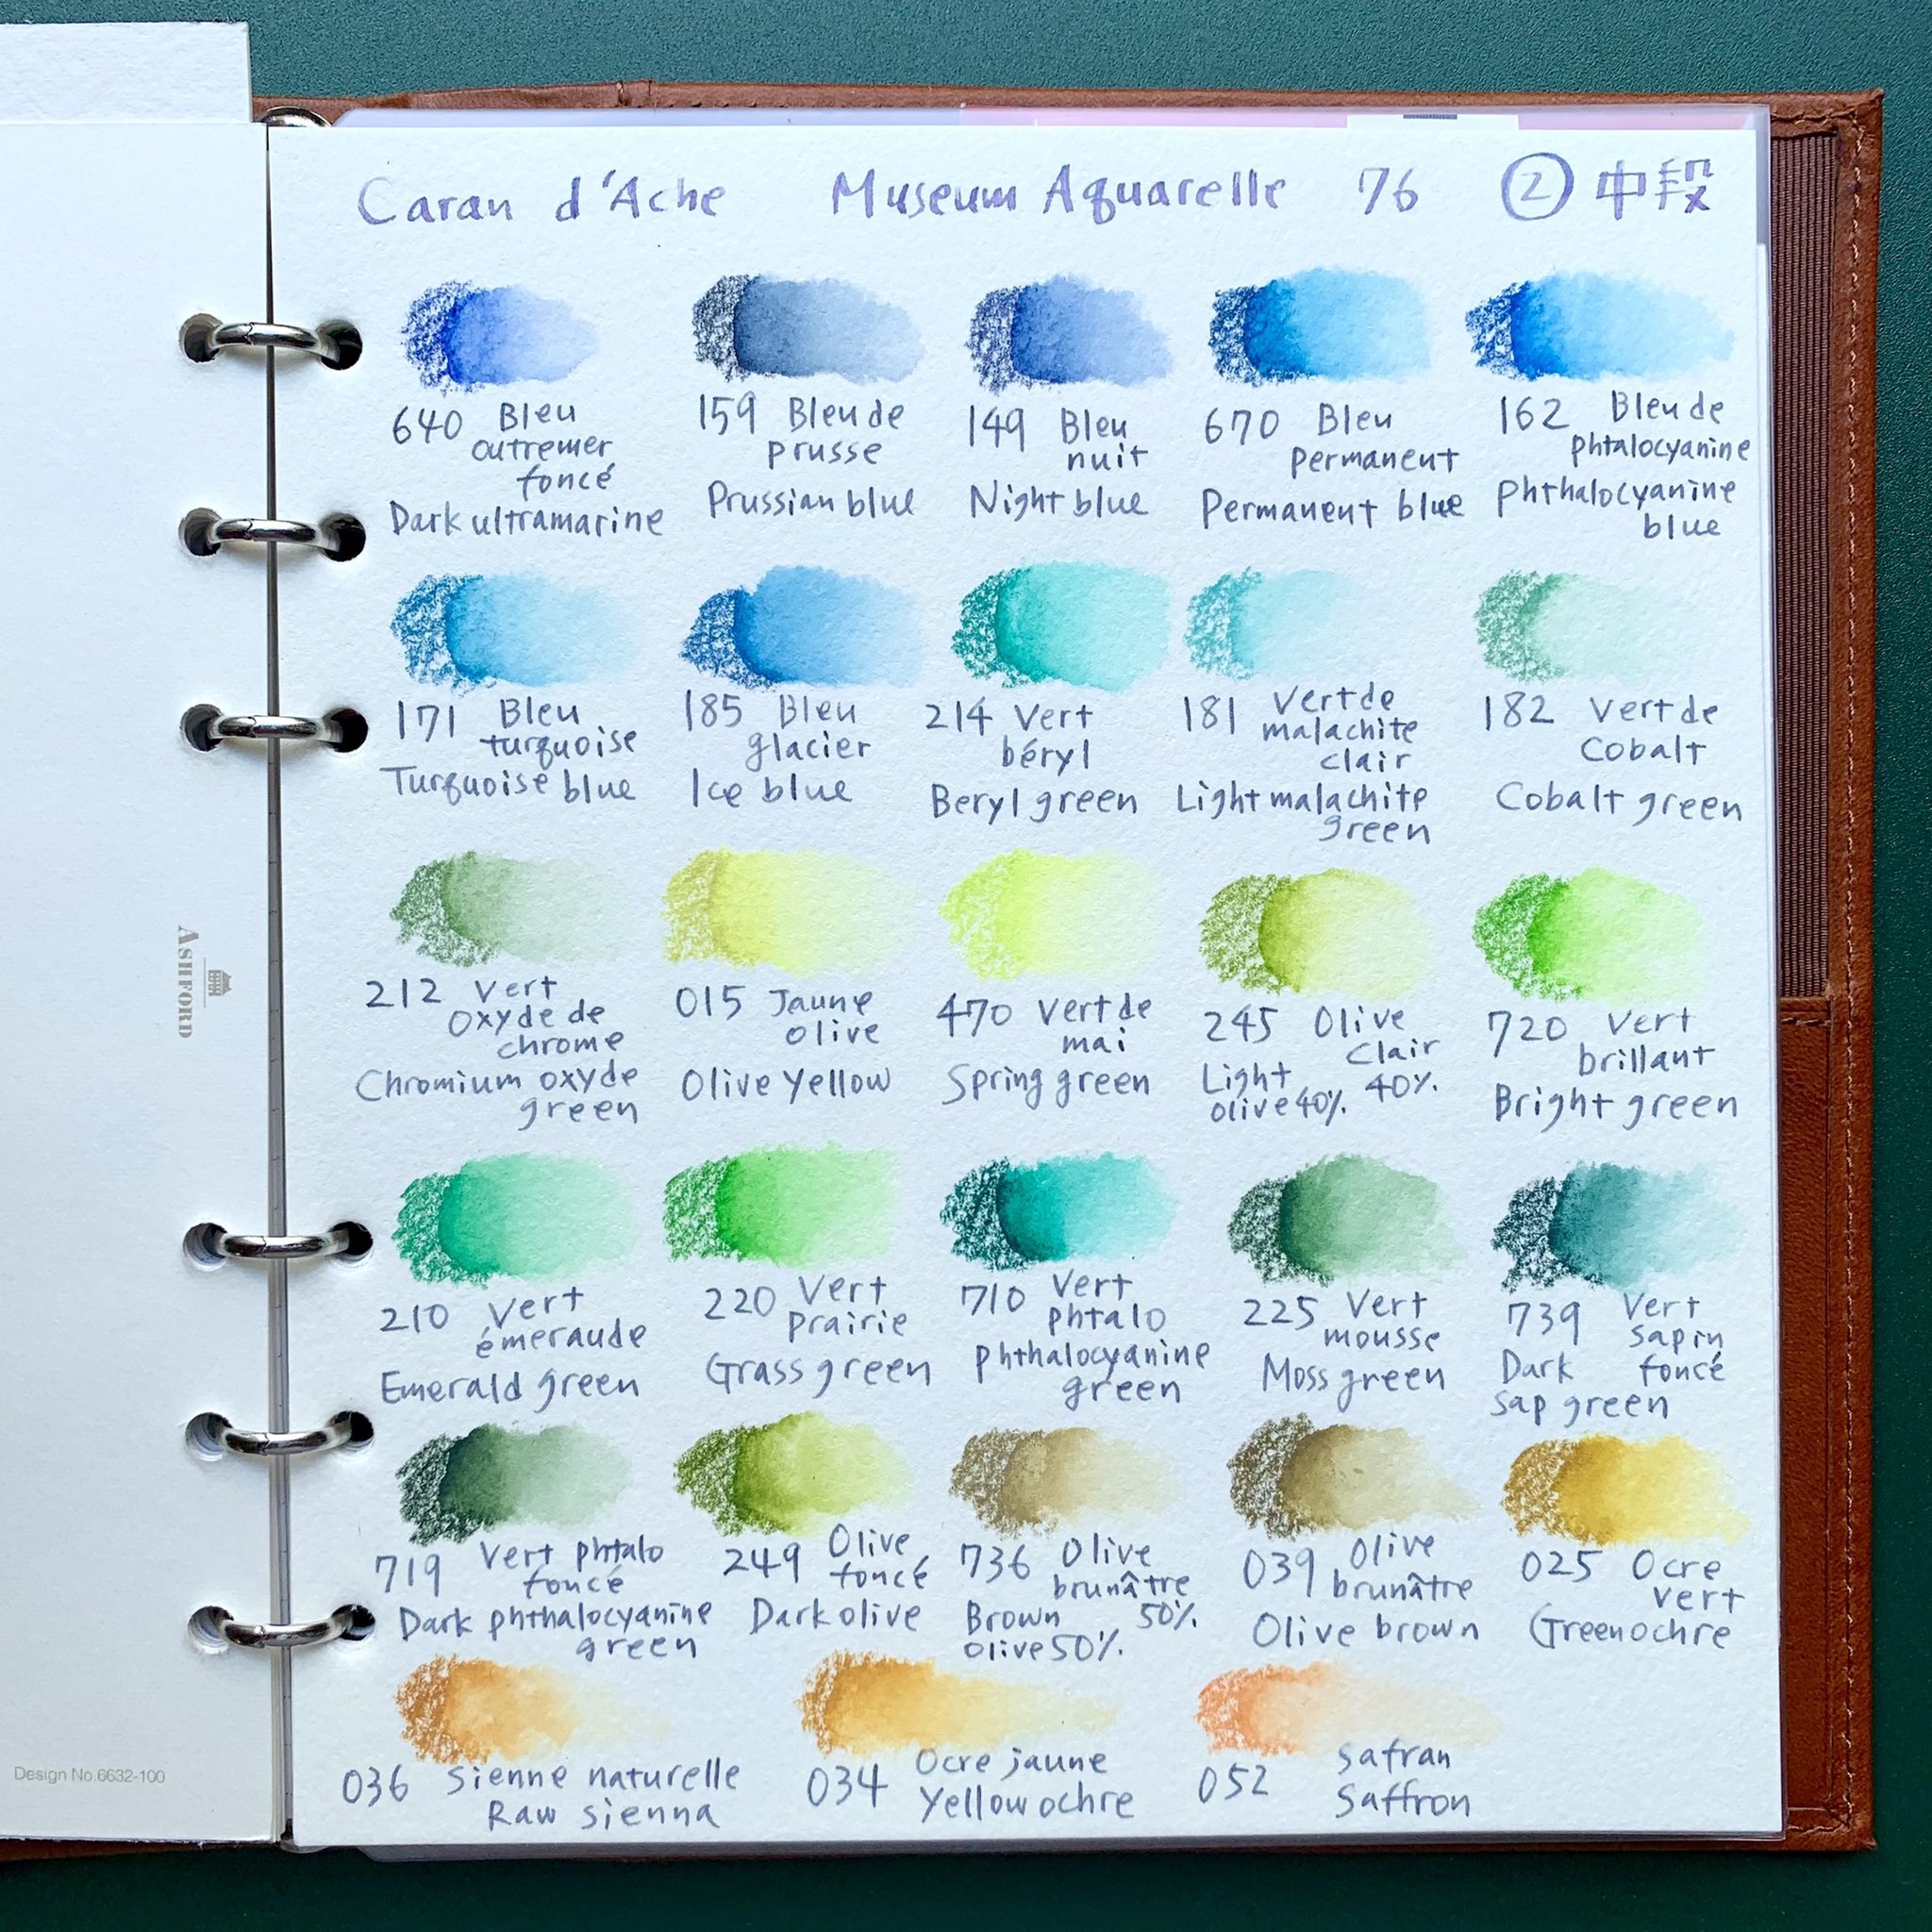 Caran d'Ache Museum Aquarelle 76 ② 中段
640 Bleu
outremer
foncé
Dark ultramarine
159 Bleu de
prusse
Prussian blue
149 Bleu
nuit
Night blue
670 Bleu
Permanent
Permanent blue
162 Bleu de
phtalocyanine
Phthalocyanine
blue
171 Bleu
turquoise
Turquoise blue
185 Bleu
glacier
Ice blue
214 Vert
béryl
Beryl green
181 Vert de
malachite
clair
Light malachite
green
182 Vert de
Cobalt
Cobalt green
212 Vert
Oxyde de
chrome
Chromium oxyde
green
015 Jaune
olive
Olive Yellow
470 Vert de
mai
Spring green
245 Olive
Clair
40%
Light
olive 40%
720 Vert
brillant
Bright green
210 Vert
émeraude
Emerald green
220 Vert
Prairie
Grass green
710 Vert
phtalo
Phthalocyanine
green
225 Vert
mousse
Moss green
739 Vert
sapin
foncé
Dark
sap green
719 Vert phtalo
foncé
Dark phthalocyanine
green
249 Olive
foncé
Dark olive
736 Olive
brunâtre
50%
Brown
olive 50%
039 Olive
brunâtre
Olive brown
025 Ocre
vert
Green ochre
036 Sienne naturelle
Raw sienna
034 Ocre jaune
Yellow ochre
052 Safran
Saffron
ASHFORD
Design No.6632-100